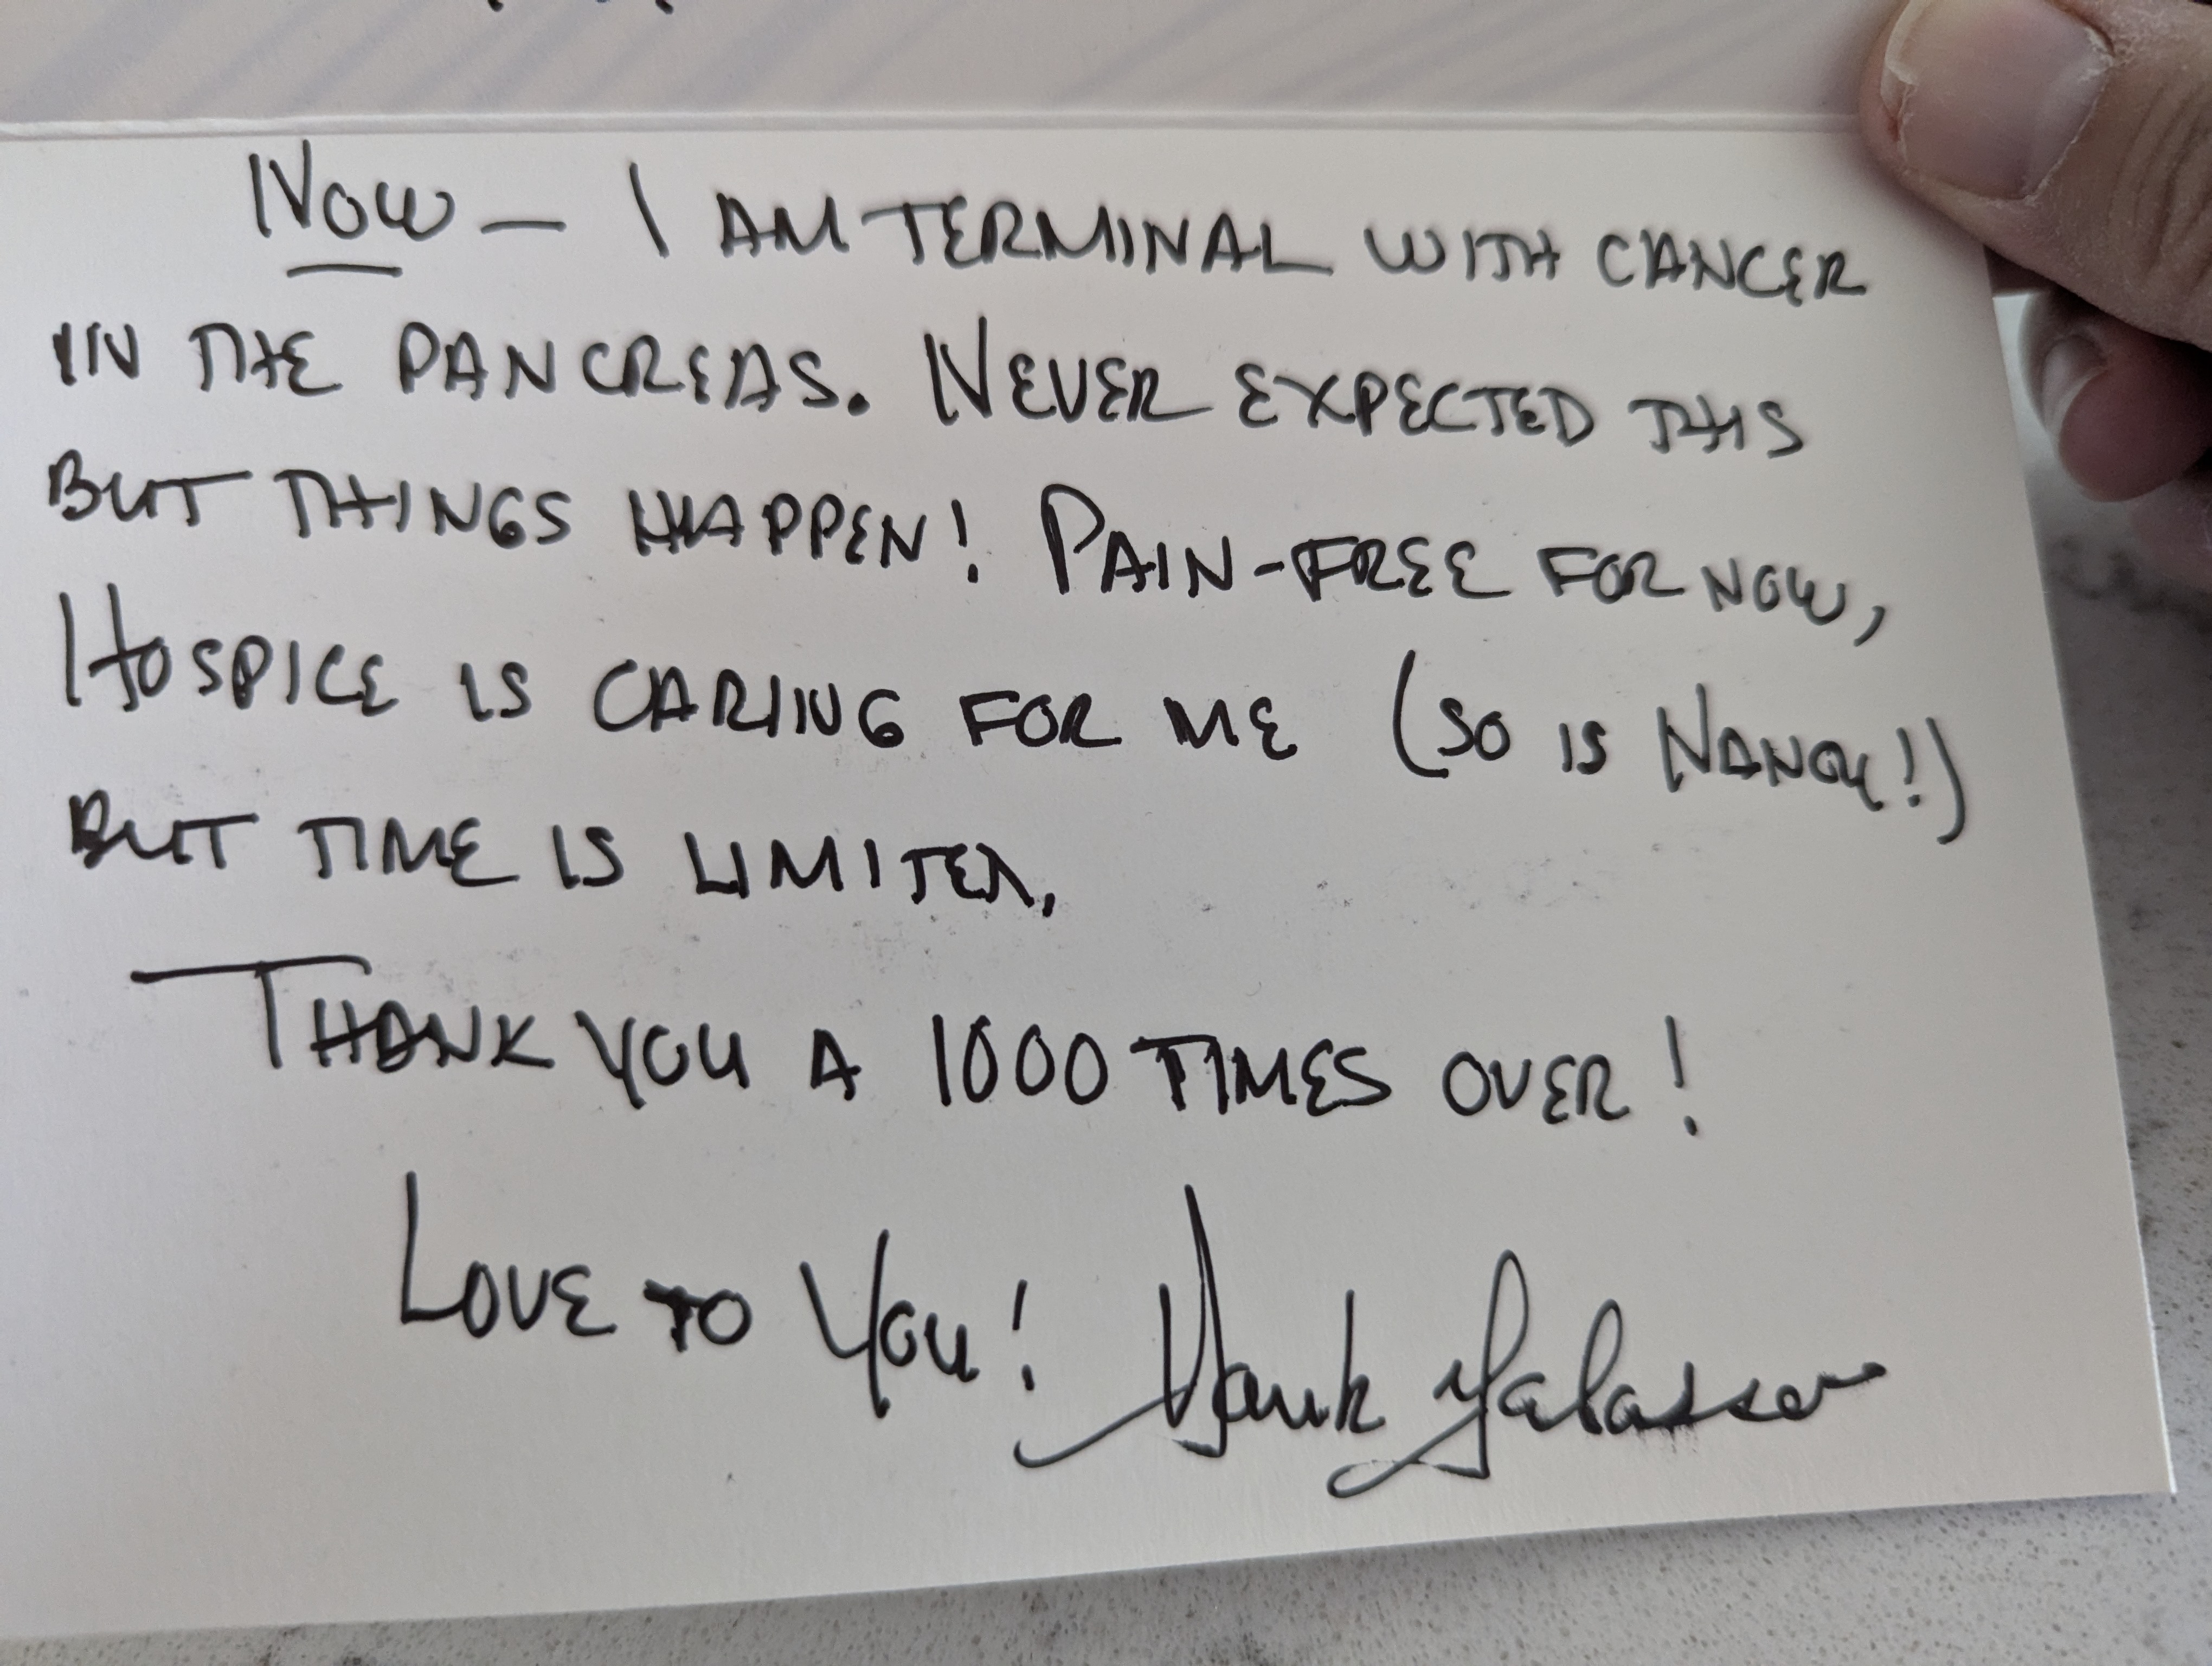 Now — I AM TERMINAL WITH CANCER
IN THE PANCREAS. NEVER EXPECTED THIS
BUT THINGS HAPPEN! PAIN-FREE FOR NOW,
HOSPICE IS CARING FOR ME (SO IS NANCY!!)
BUT TIME IS LIMITED.
THANK YOU A 1000 TIMES OVER!
LOVE TO YOU! Hank Galasso